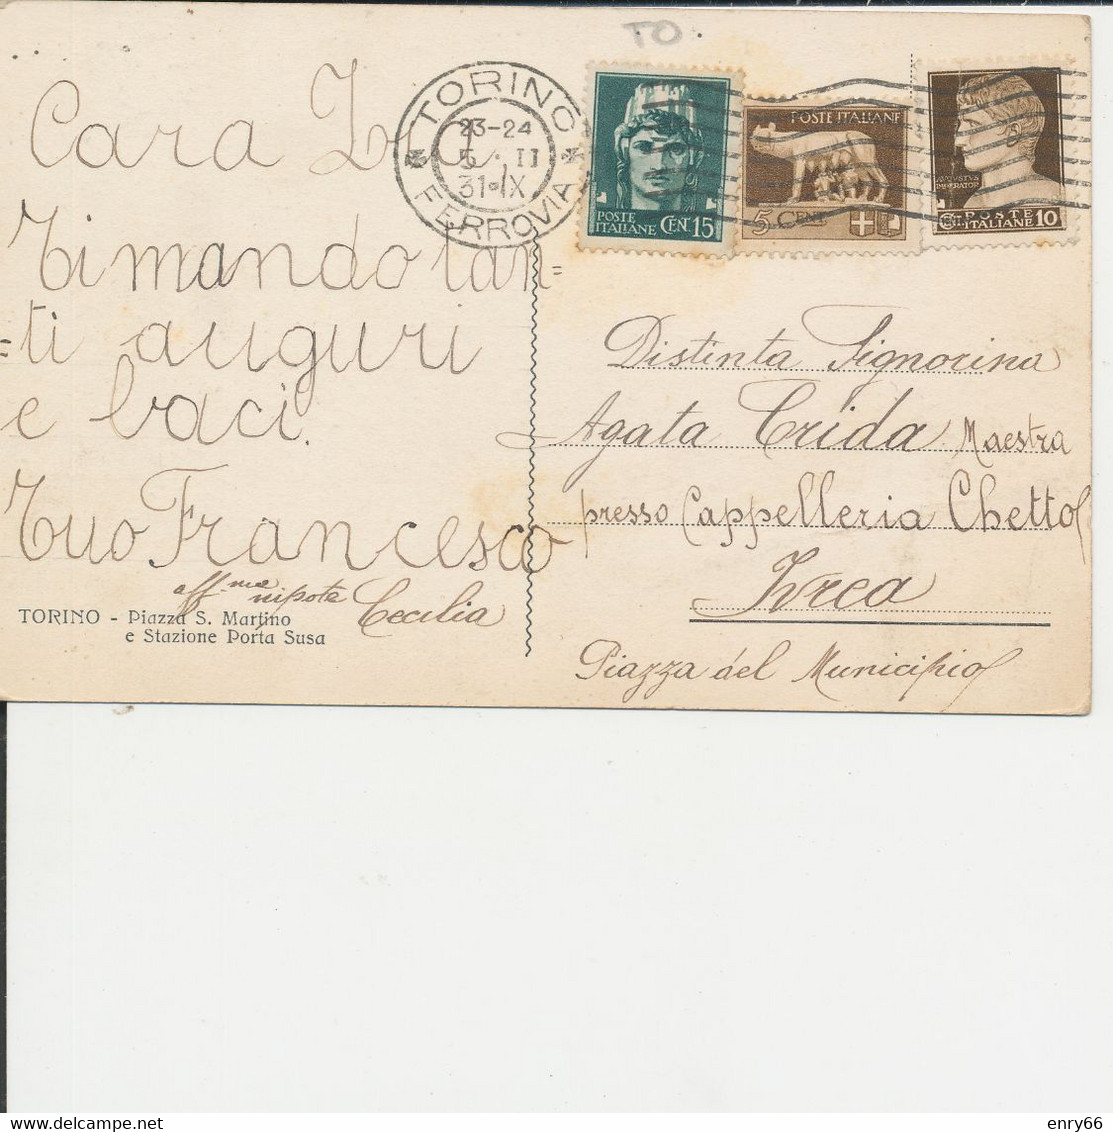 TO
TORINO
23-24
5 · II
31·IX
FERROVIA
POSTE
ITALIANE CEN. 15
POSTE ITALIANE
5 CENT
AVGVSTVS
IMPERATOR
CENT. POSTE
ITALIANE 10
Cara Z
Ti mando tan=
=ti auguri
e baci.
Tuo Francesco
aff.ma nipote Cecilia
TORINO - Piazza S. Martino
e Stazione Porta Susa
Distinta Signorina
Agata Crida Maestra
presso Cappelleria Chetto
Ivrea
Piazza del Municipio
enry66